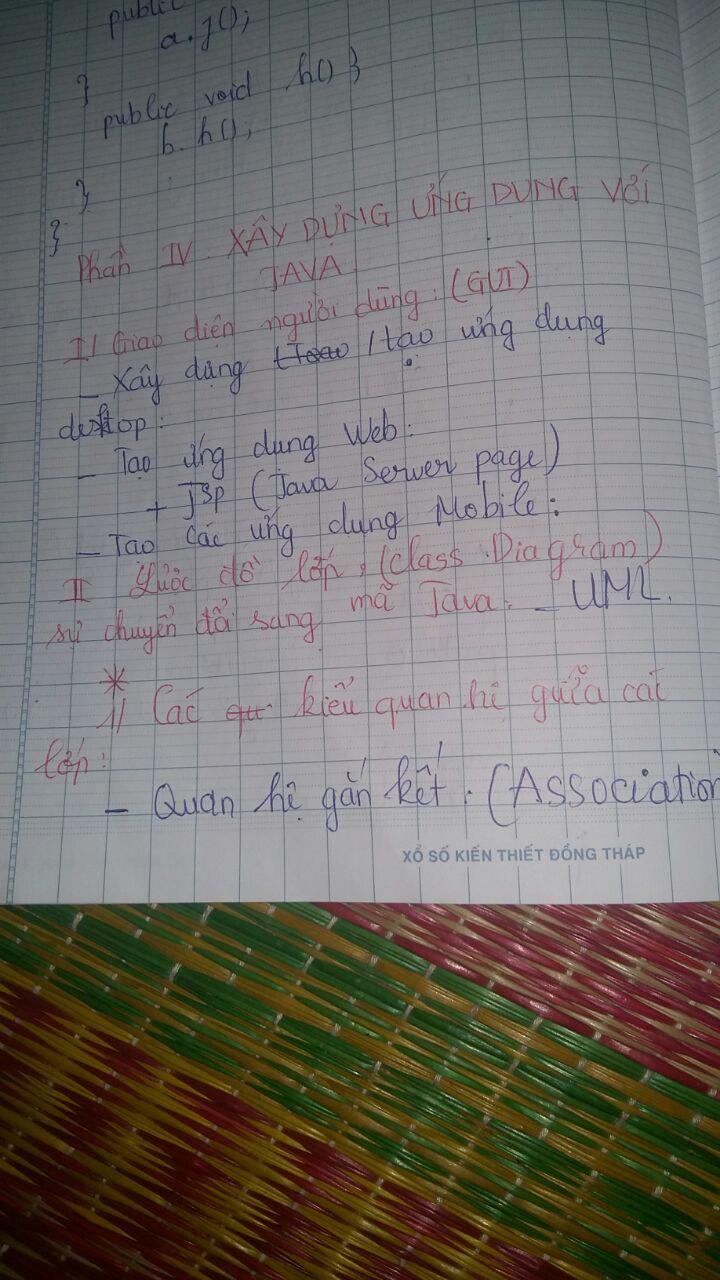 public
a.g();
}
public void h() }
b.h();
}
}
Phần IV. XÂY DỰNG ỨNG DUNG VỚI
JAVA
I/ Giao diện người dùng: (GUI)
- Xây dựng /tạo ứng dụng
desktop:
- Tạo ứng dụng Web:
+ JSP (Java Server page)
- Tạo các ứng dụng Mobile:
II Lược đồ lớp: (Class Diagram)
sự chuyển đổi sang mã Java. - UML.
*
1/ Các kiểu quan hệ giữa các
lớp:
- Quan hệ gắn kết: (Association
XỔ SỐ KIẾN THIẾT ĐỒNG THÁP